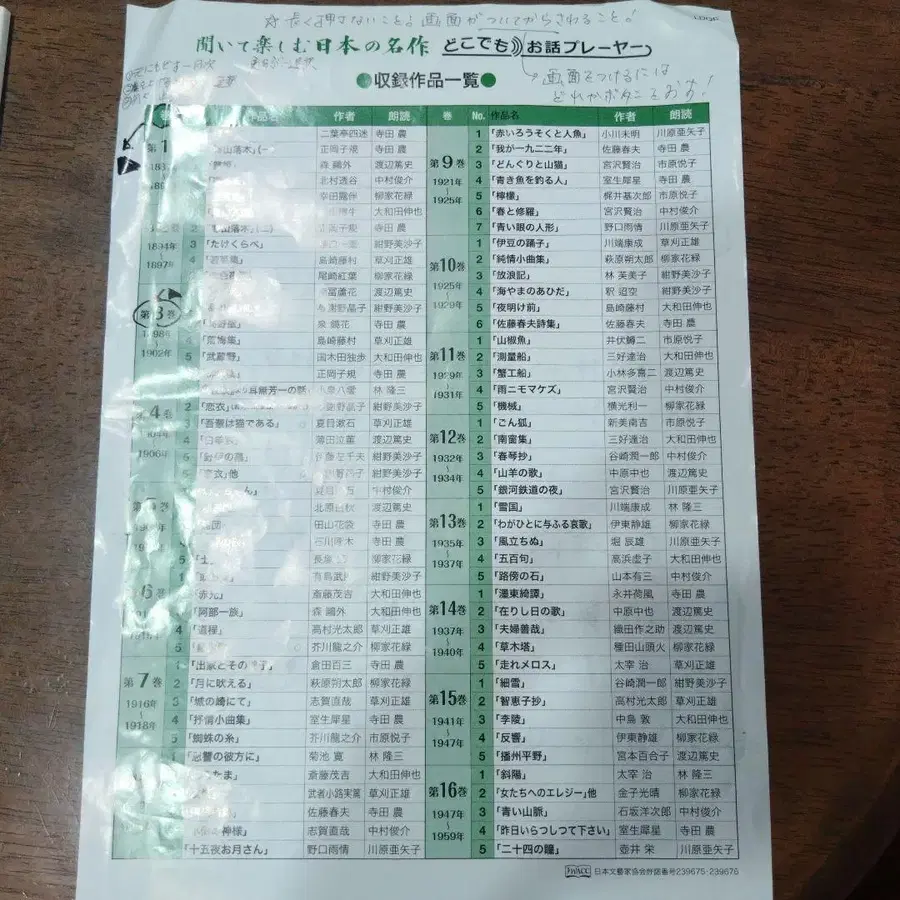 長く押さないこと！画面がついてからさわること！
聞いて楽しむ日本の名作 どこでもお話プレーヤー
画面をつけるには
どれかボタンをおす！
●収録作品一覧●
作品名 作者 朗読 巻 No. 作品名 作者 朗読
二葉亭四迷 寺田 農
正岡子規 寺田 農
森 鷗外 渡辺篤史
北村透谷 中村俊介
幸田露伴 柳家花緑
大和田伸也
2 正岡子規 寺田 農
1894年 3 「たけくらべ」 紺野美沙子
1897年 4 島崎藤村 草刈正雄
尾崎紅葉 柳家花緑
渡辺篤史
第3巻 紺野美沙子
泉 鏡花 寺田 農
1898年 4 島崎藤村 草刈正雄
1902年 5 「武蔵野」 国木田独歩 大和田伸也
正岡子規 寺田 農
耳無芳一の話 小泉八雲 林 隆三
第4巻 2 「恋衣」 紺野美沙子
3 「吾輩は猫である」 夏目漱石 草刈正雄
4 薄田泣菫 渡辺篤史
1906年 5 「野菊の墓」 伊藤左千夫 紺野美沙子
「恋衣」他 紺野美沙子
中村俊介
北原白秋 渡辺篤史
田山花袋 寺田 農
石川啄木 寺田 農
5 長塚 柳家花緑
1 有島武郎 紺野美沙子
「赤光」 斎藤茂吉 大和田伸也
「阿部一族」 森 鷗外 大和田伸也
4 「道程」 高村光太郎 草刈正雄
5 芥川龍之介 柳家花緑
1 「出家とその弟子」 倉田百三 寺田 農
第7巻 2 「月に吠える」 萩原朔太郎 柳家花緑
1916年 3 「城の崎にて」 志賀直哉 草刈正雄
1918年 4 「抒情小曲集」 室生犀星 寺田 農
5 「蜘蛛の糸」 芥川龍之介 市原悦子
1 「恩讐の彼方に」 菊池 寛 林 隆三
斎藤茂吉 大和田伸也
武者小路実篤 草刈正雄
佐藤春夫 寺田 農
神様」 志賀直哉 中村俊介
「十五夜お月さん」 野口雨情 川原亜矢子
1 「赤いろうそくと人魚」 小川未明 川原亜矢子
2 「我が一九二二年」 佐藤春夫 寺田 農
第9巻 3 「どんぐりと山猫」 宮沢賢治 市原悦子
1921年 4 「青き魚を釣る人」 室生犀星 寺田 農
1925年 5 「檸檬」 梶井基次郎 市原悦子
6 「春と修羅」 宮沢賢治 中村俊介
7 「青い眼の人形」 野口雨情 川原亜矢子
1 「伊豆の踊子」 川端康成 草刈正雄
第10巻 2 「純情小曲集」 萩原朔太郎 柳家花緑
3 「放浪記」 林 芙美子 紺野美沙子
1925年 4 「海やまのあひだ」 釈 迢空 紺野美沙子
1929年 5 「夜明け前」 島崎藤村 大和田伸也
6 「佐藤春夫詩集」 佐藤春夫 寺田 農
1 「山椒魚」 井伏鱒二 市原悦子
第11巻 2 「測量船」 三好達治 大和田伸也
1929年 3 「蟹工船」 小林多喜二 渡辺篤史
1931年 4 「雨ニモマケズ」 宮沢賢治 中村俊介
5 「機械」 横光利一 柳家花緑
1 「ごん狐」 新美南吉 市原悦子
第12巻 2 「南窗集」 三好達治 大和田伸也
1932年 3 「春琴抄」 谷崎潤一郎 中村俊介
1934年 4 「山羊の歌」 中原中也 渡辺篤史
5 「銀河鉄道の夜」 宮沢賢治 川原亜矢子
1 「雪国」 川端康成 林 隆三
第13巻 2 「わがひとに与ふる哀歌」 伊東静雄 柳家花緑
1935年 3 「風立ちぬ」 堀 辰雄 川原亜矢子
1937年 4 「五百句」 高浜虚子 大和田伸也
5 「路傍の石」 山本有三 中村俊介
1 「濹東綺譚」 永井荷風 寺田 農
第14巻 2 「在りし日の歌」 中原中也 渡辺篤史
1937年 3 「夫婦善哉」 織田作之助 渡辺篤史
1940年 4 「草木塔」 種田山頭火 柳家花緑
5 「走れメロス」 太宰 治 草刈正雄
1 「細雪」 谷崎潤一郎 紺野美沙子
第15巻 2 「智恵子抄」 高村光太郎 草刈正雄
1941年 3 「李陵」 中島 敦 大和田伸也
1947年 4 「反響」 伊東静雄 柳家花緑
5 「播州平野」 宮本百合子 渡辺篤史
1 「斜陽」 太宰 治 林 隆三
第16巻 2 「女たちへのエレジー」他 金子光晴 柳家花緑
1947年 3 「青い山脈」 石坂洋次郎 中村俊介
1959年 4 「昨日いらつしつて下さい」 室生犀星 寺田 農
5 「二十四の瞳」 壺井 栄 川原亜矢子
日本文藝家協会許諾番号239675-239676